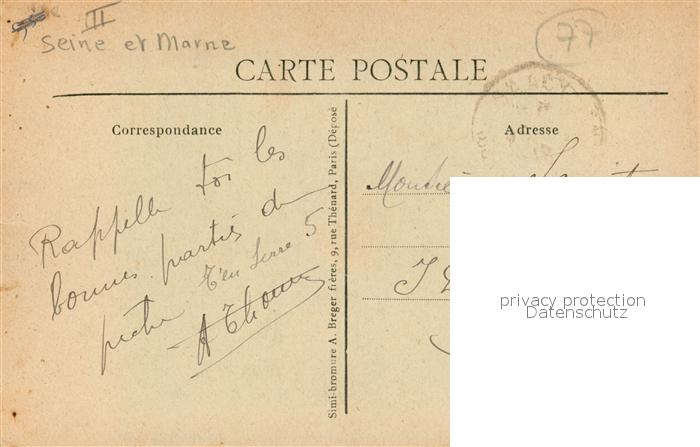 III
Seine et Marne
77
CARTE POSTALE
Correspondance
Adresse
Rappelle toi les
bonnes parties de
pêche T'en serre 5
A Thom
Simi-bromure A. Breger frères, 9, rue Thénard, Paris (Déposé
privacy protection
Datenschutz